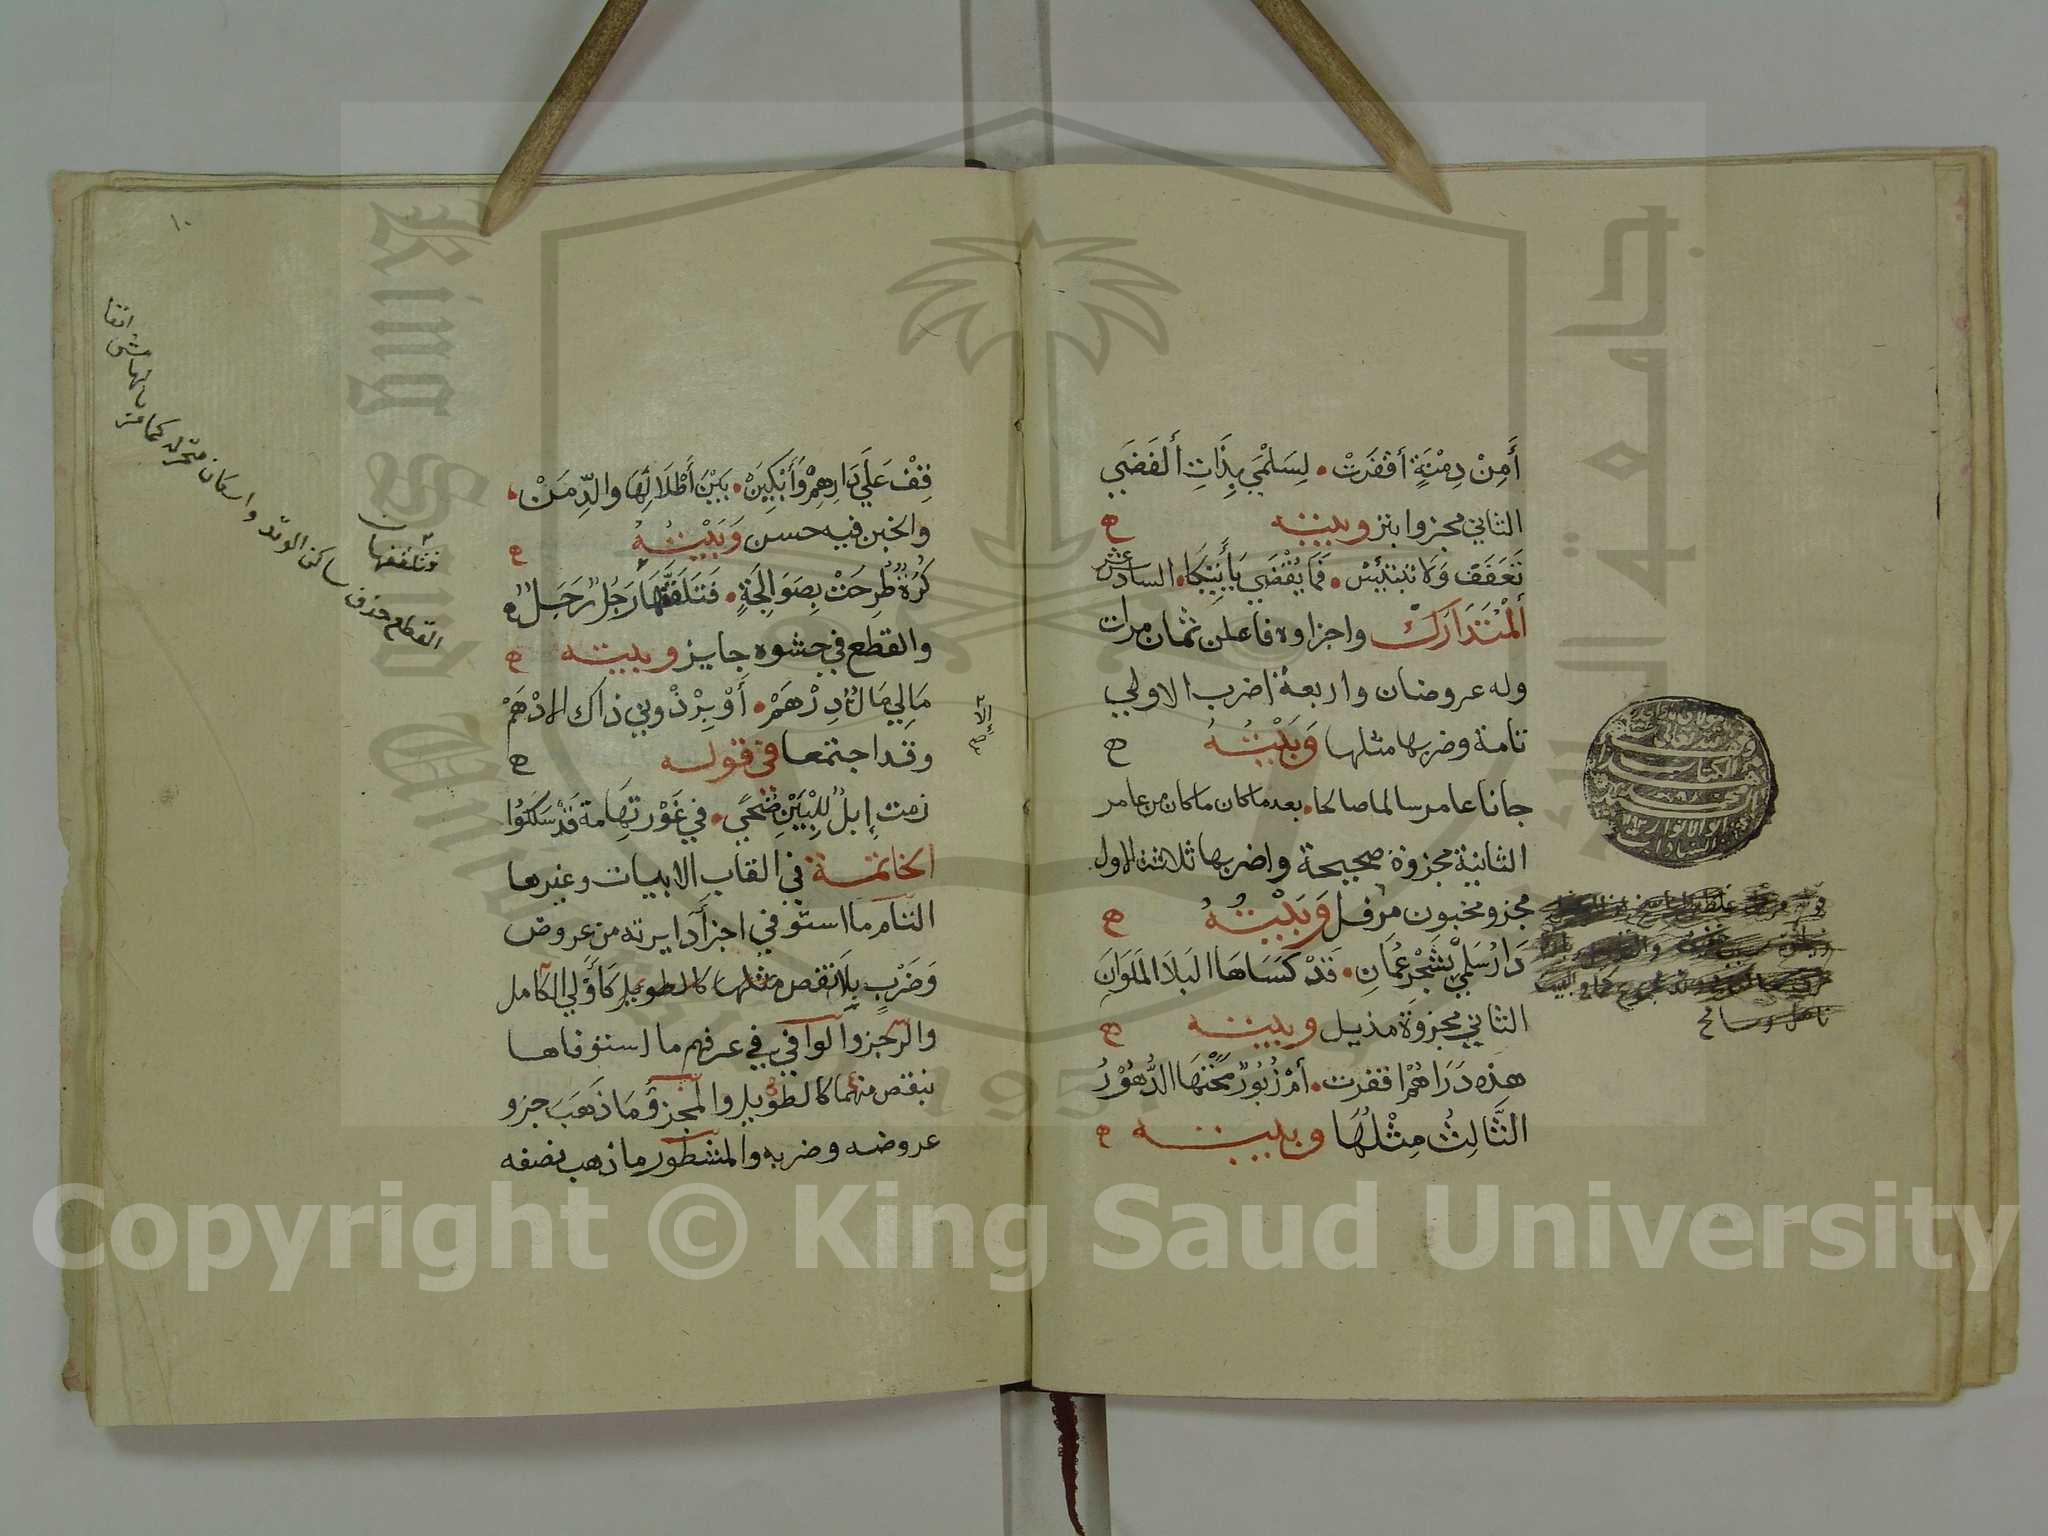 أَمِنْ دِمْنَةٍ أقفرَتْ • لِسَلْمَي بِذَاتِ ألغَضَي
الثاني مجزوا بتر وبيتـه ح
تَعَفَفْ وَلا تبتئِسْ • فَمَا يُقْضَي يَأْتِيكَا • السادس عشر
ألْمُتَدَارَكْ واجزاوه فاعلن ثمان مرات
وله عروضان واربعة اضرب الاولي
تامة وضربها مثلها وَبَيْتُـهُ ح
جانا عامر سالما صالحا • بعد ما كان ما كان من عامر
الثانية مجزوة صحيحة واضربها ثلاثة الاول
مجزو مخبون مرفل وَبَيْتُـهُ ح
دَارُ سَلْمَي بِشَجْرِ عُمَانِ • قَدْ كَسَاهَا البَلَا المَلَوَانِ
الثاني مجزوة مذيل وبيتـه ح
هذه دَرَاهُمْ اقفرت • أمْ زُبُورٌ مَحَتْهَا الدُّهُوْرُ
الثَّالِثُ مِثْلُهَا وبيتـه ح
ناهل وسامح
١٠
قِفْ عَلَي دَارِهِمْ وَأَبْكِيَنْ • بَيْنَ أَطْلَالِهَا والدِّمَنْ •
والخبن فيه حسن وَبَيْتُـهُ ح
كُرَةٌ طُرِحَتْ بِصَوَالِجَةٍ • فَتَلَقَّفَهَا رَجُلٌ رَجُلٌ
والقطع في حشوه جايز وبيتـه ح
مَالِي مَالٌ دِرْهَمْ • أَوْ بِرْذَوني ذاك الادْهَمْ
إلا صح
وقد اجتمعا في قولـه ح
زمت إبلٌ لِلْبَيْنِ ضُحًي • في غَوْرِ تِهَامة قَدْ سَلَكُوا
الخاتمـة في القاب الابيات وغيرها
التام ما استوفي اجزأ دايرته من عروض
وَضَرْبٍ بِلَا نقص مثلها كالطويل كَأَوَّلِ الكامل
والرجز والوافي في عرفهم ما استوفاها
بنقص منهما كالطويل والمجزوُ مَا ذَهَبَ جزو
عروضه وضربه والمشطور ما ذهب نصفه
فتلقفها
القطع حذف ساكن الوتد واسكان متحركه كما مر